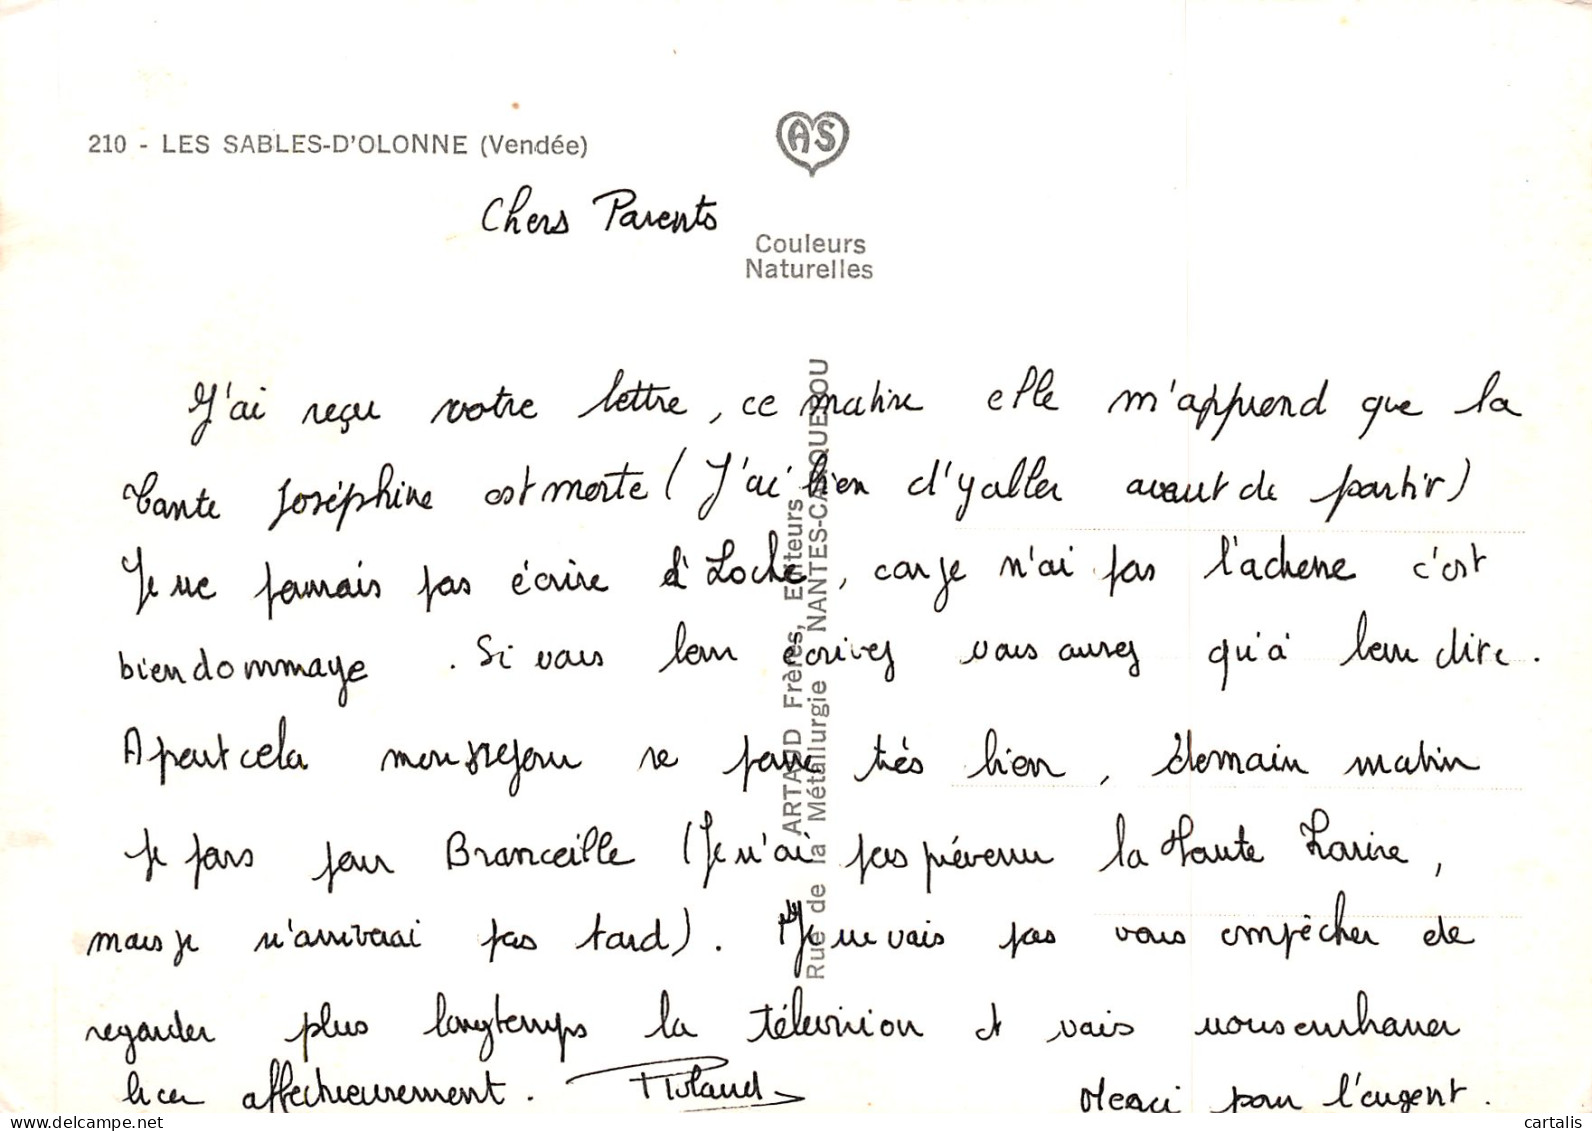 210 - LES SABLES-D'OLONNE (Vendée)
AS
Couleurs
Naturelles
ARTAUD Frères, Editeurs
Rue de la Métallurgie NANTES-CARQUEFOU
Chers Parents
J'ai reçu votre lettre, ce matin elle m'apprend que la
tante Joséphine est morte (J'ai bien d'y aller avant de partir)
Je ne pas écrire à Loche, car je n'ai pas l'adresse c'est
bien dommage. Si vous leur écrivez vous aurez qu'à leur dire.
A part cela mon séjour se passe très bien, demain matin
je pars pour Branceille (Je n'ai pas prévenu la Haute
mais je n'arriverai pas tard). Je ne vais pas vous empêcher de
regarder plus longtemps la télévision et vais vous embrasser
bien affectueusement. Roland Merci pour l'argent.
cartalis